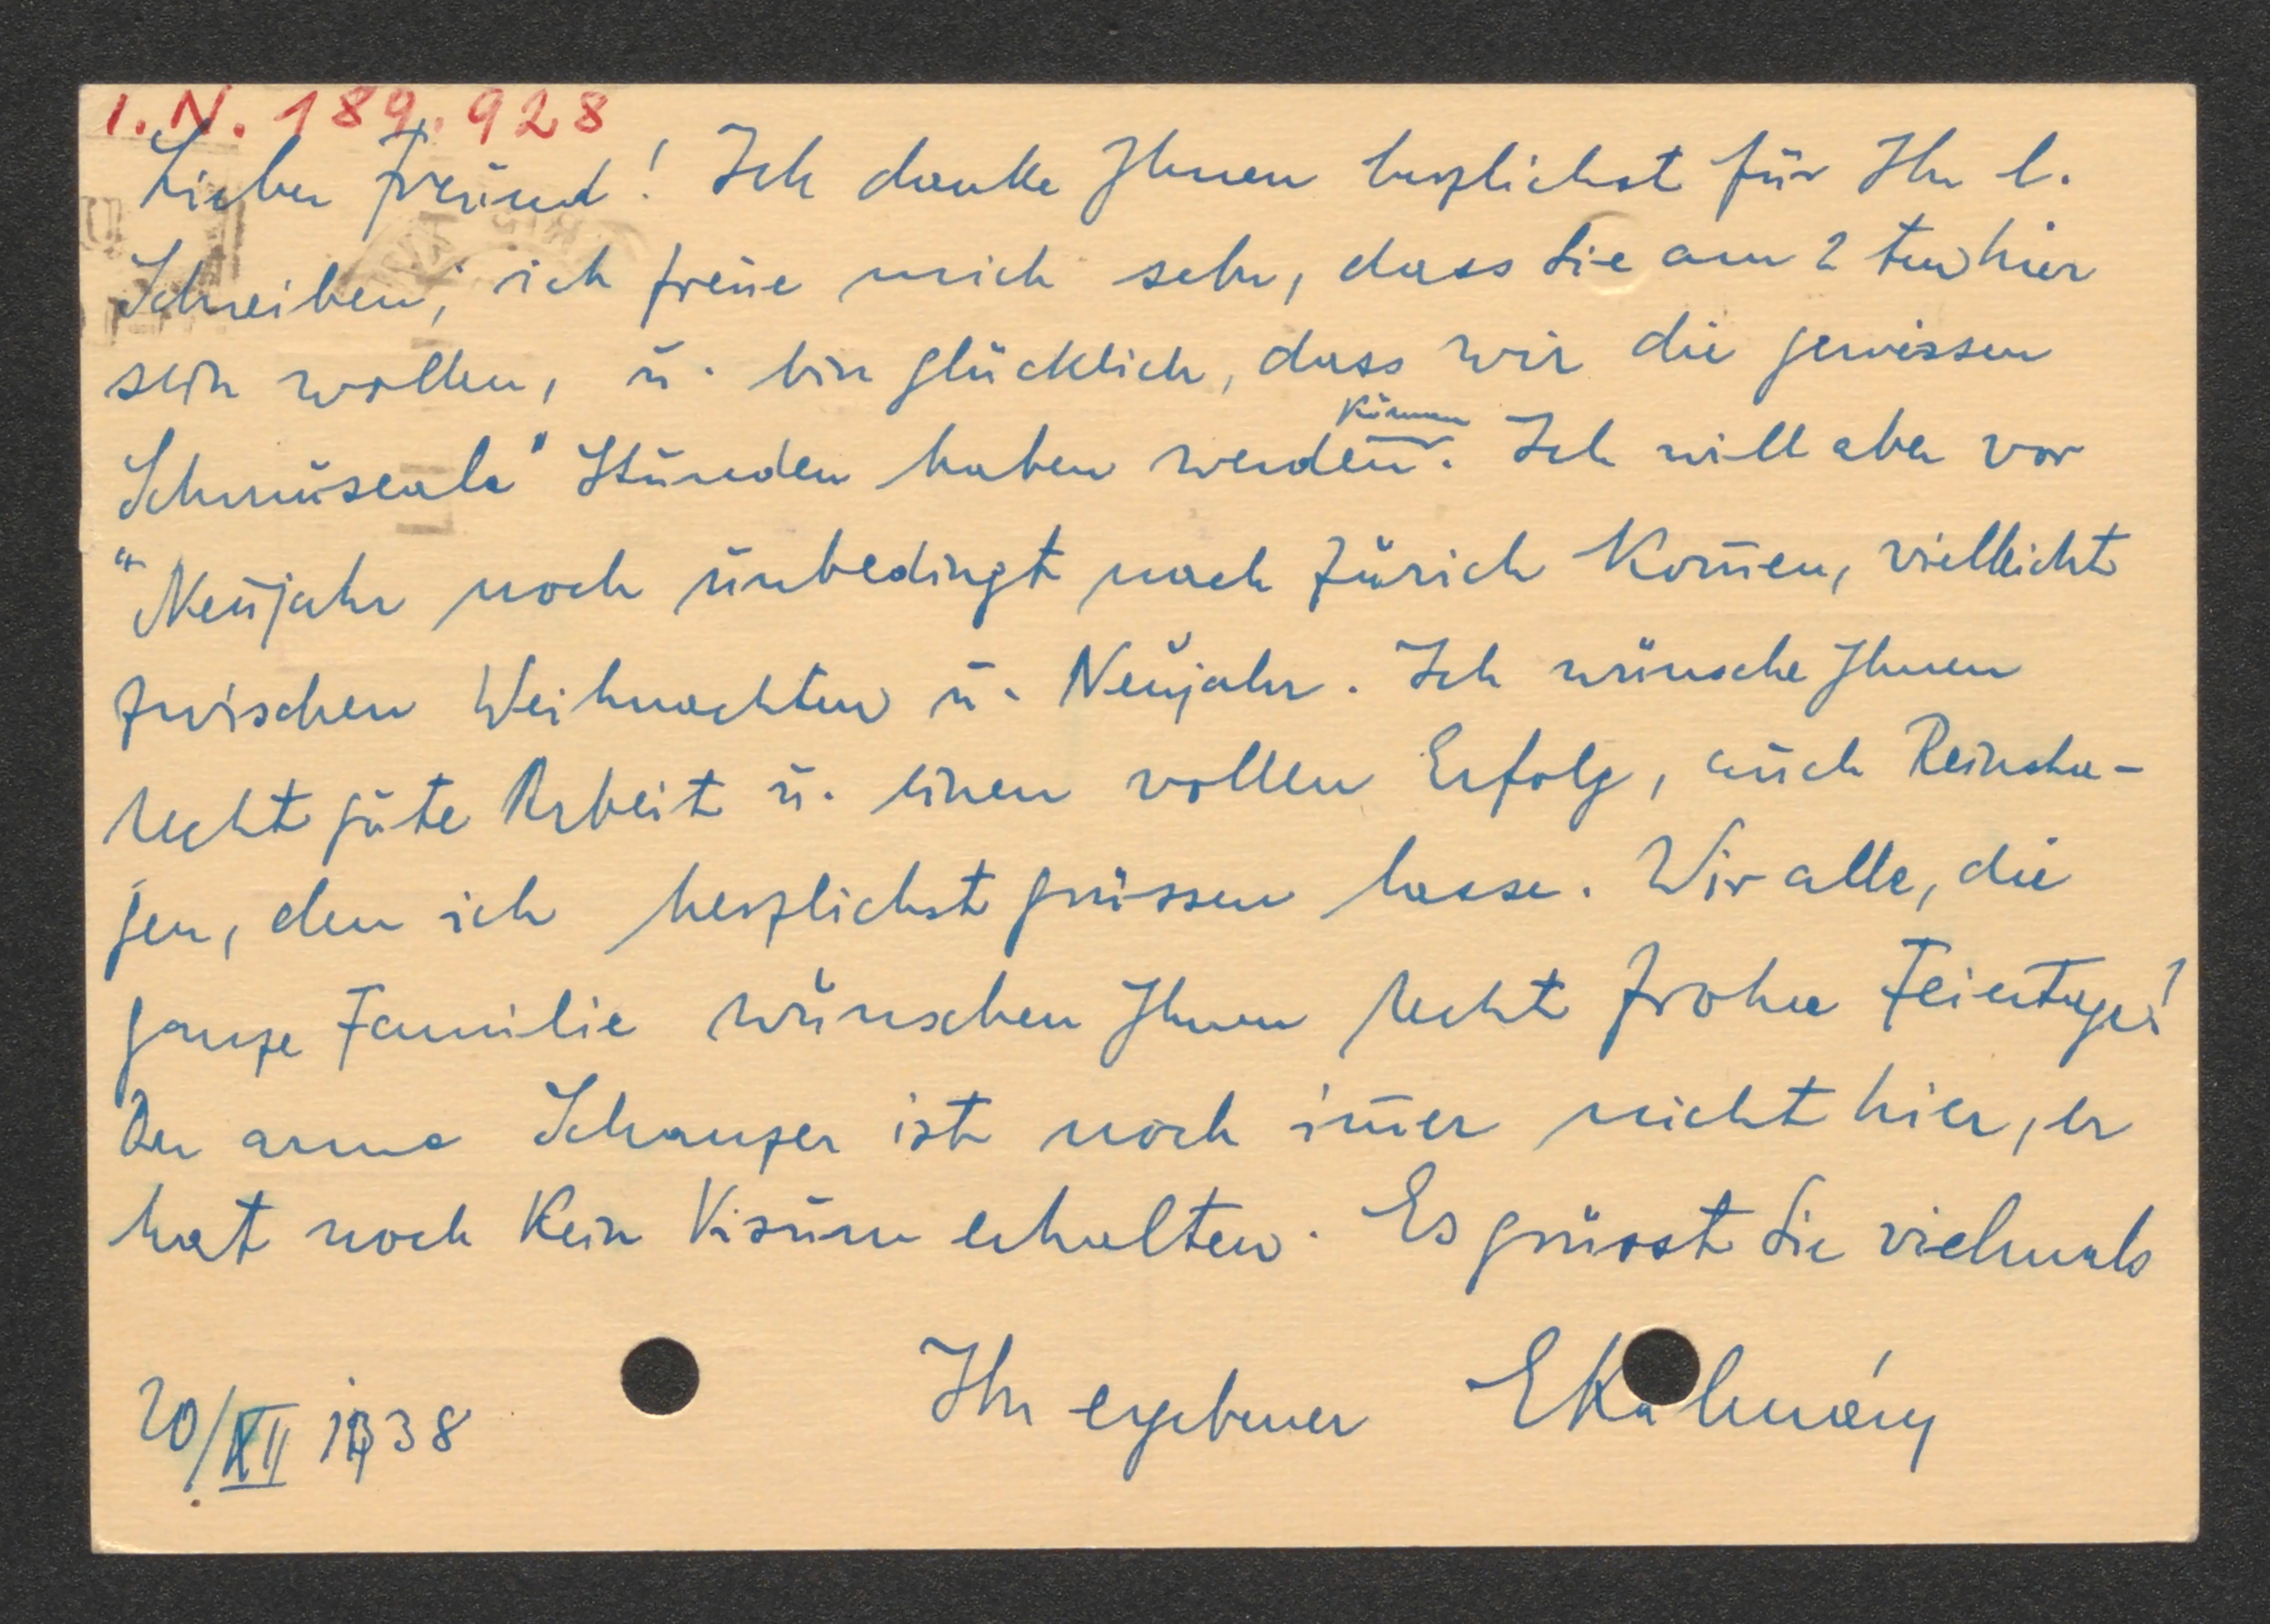 I.N. 189.928
Lieber Freund! Ich danke Ihnen herzlichst für Ihr l.
Schreiben; ich freue mich sehr, dass Sie am 2 ten hier
sein wollen, u. bin glücklich, dass wir die gewissen
können
Schmuseale" Stunden haben werden. Ich will aber vor
"Neujahr noch unbedingt nach Zürich kom̅en, vielleicht
zwischen Weihnachten u. Neujahr. Ich wünsche Ihnen
recht gute Arbeit u. einen vollen Erfolg, auch Reinsha-
gen, den ich herzlichst grüssen lasse. Wir alle, die
ganze Familie wünschen Ihnen recht frohe Feiertage!
Der arme Schanzer ist noch im̅er nicht hier, er
hat noch kein Visum erhalten. Es grüsst Sie vielmals
20/XII 1938 Ihr ergebener EKálmán